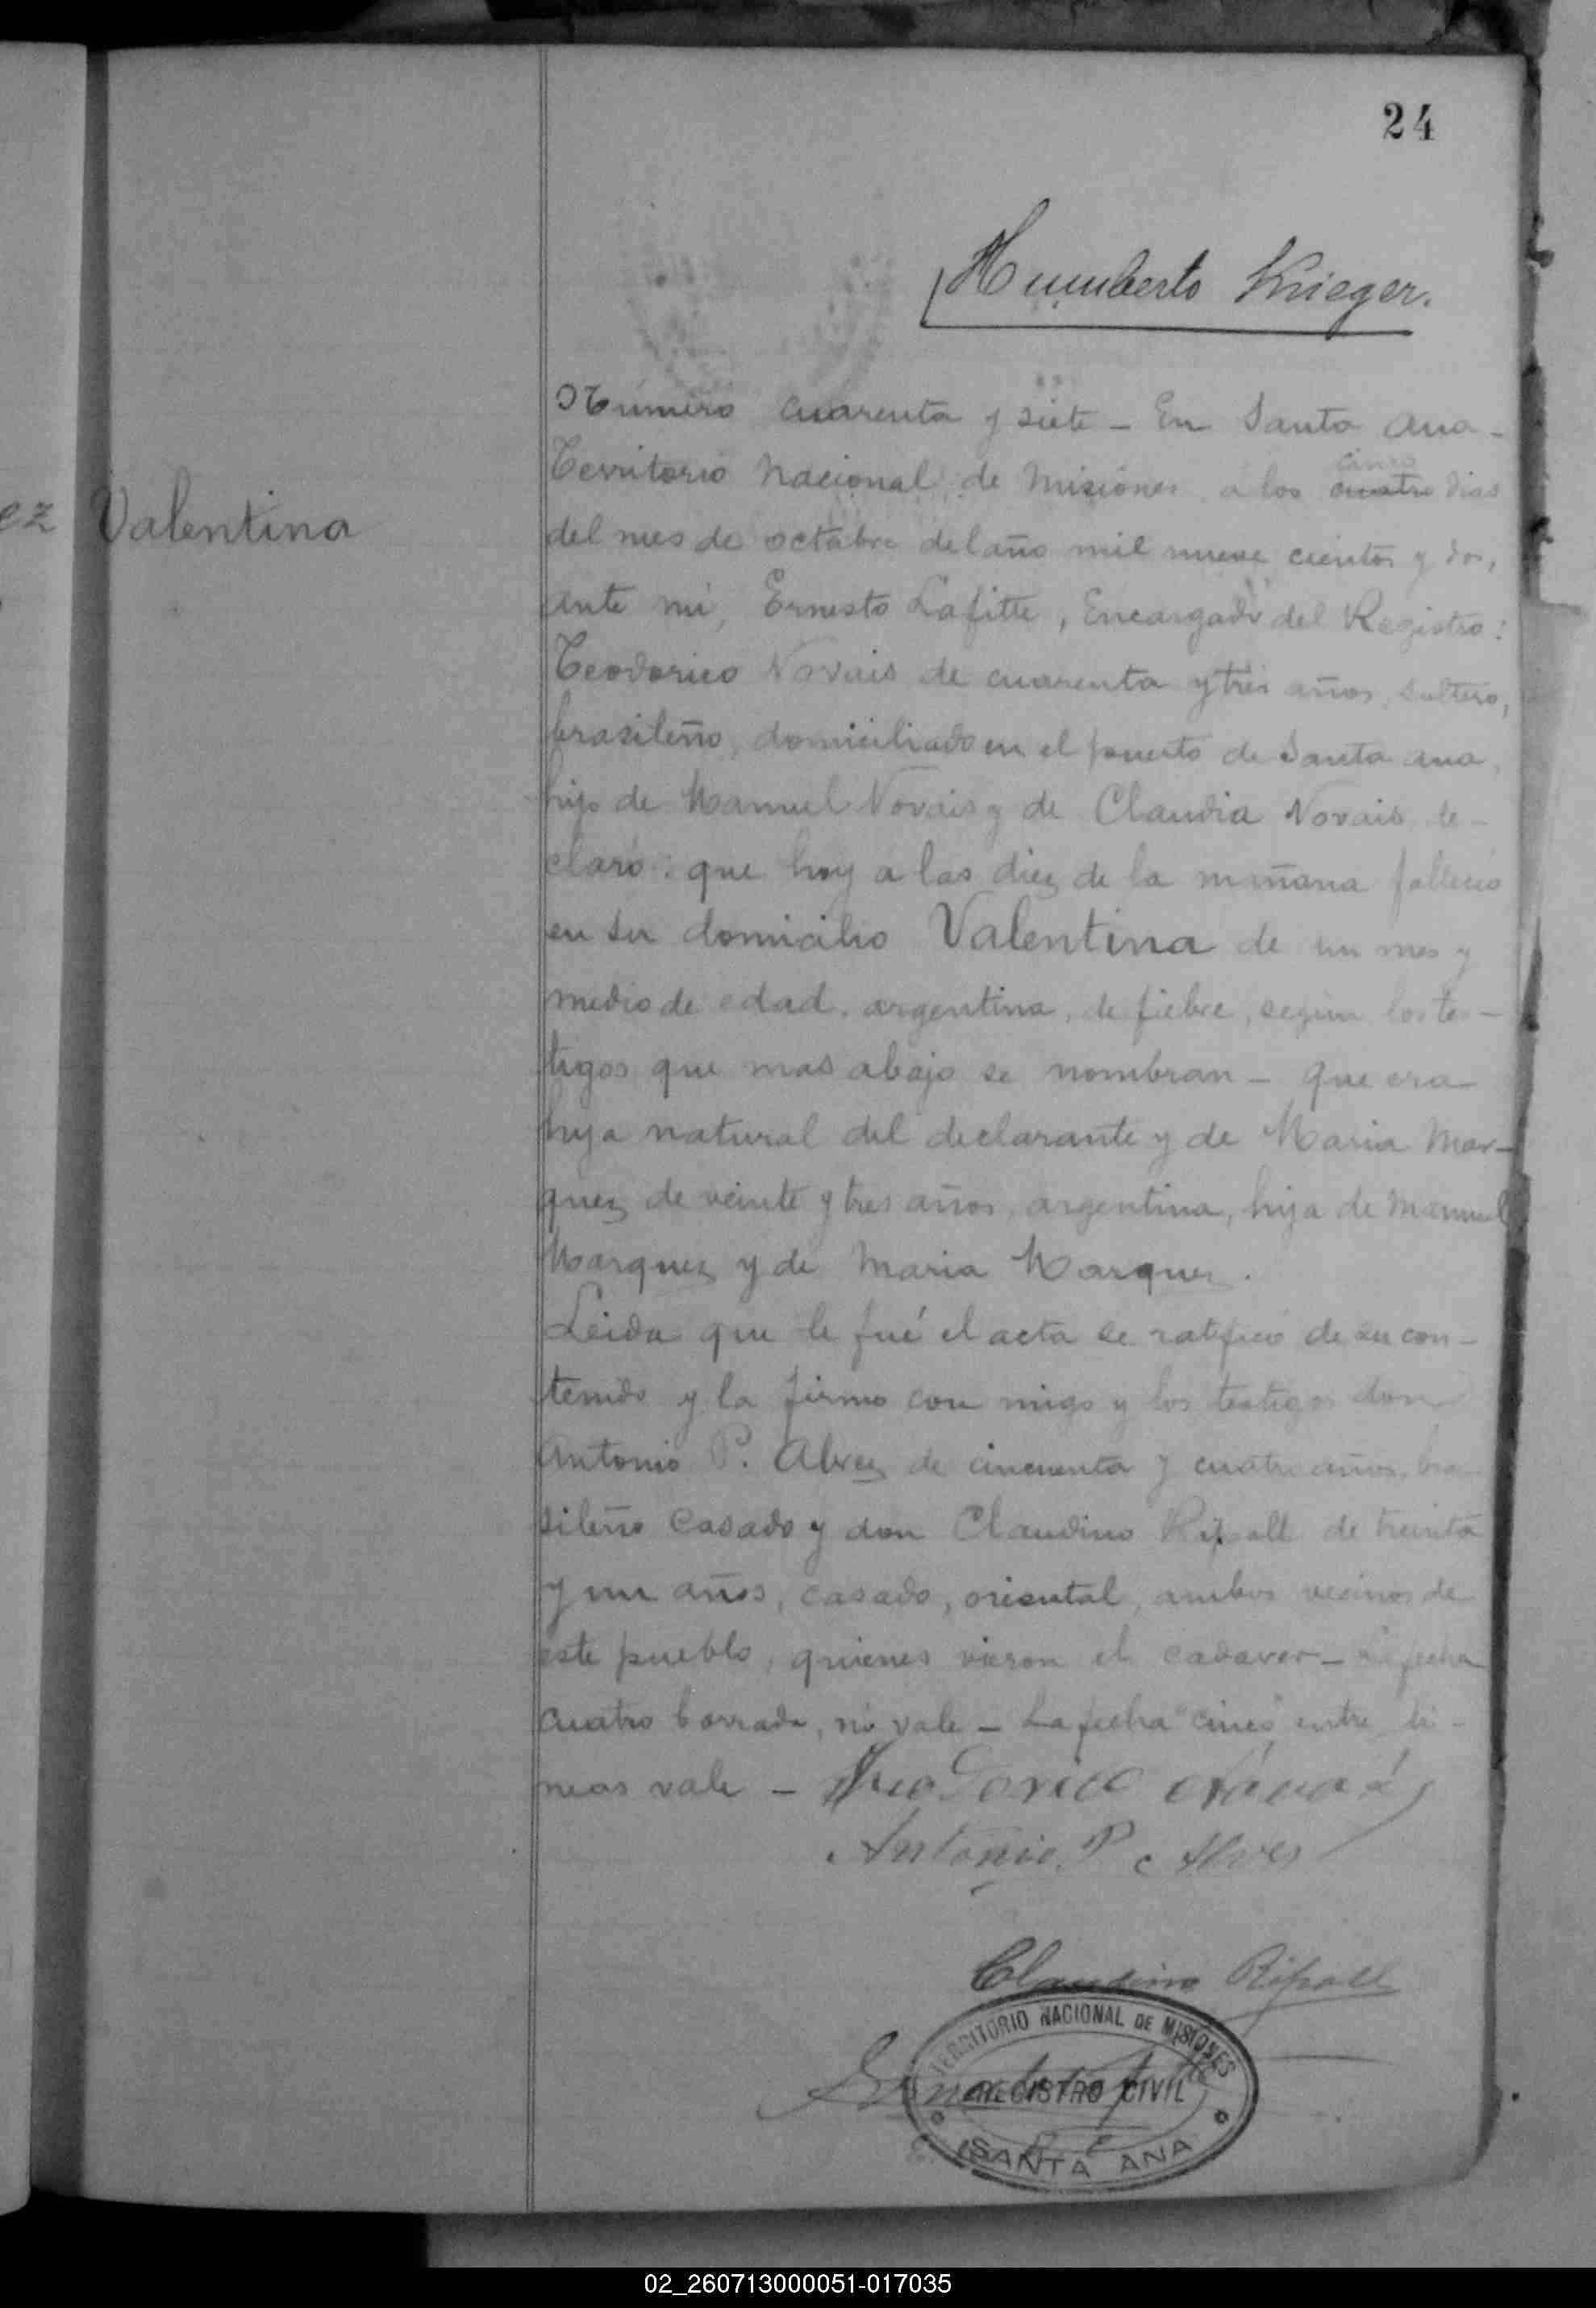 24
Humberto Krieger.
Número cuarenta y siete - En Santa Ana -
Territorio Nacional de Misiones a los cinco cuatro dias
ez Valentina
del mes de octubre del año mil nueve cientos y dos,
ante mi, Ernesto Lafitte, Encargado del Registro:
Teodorico Novais de cuarenta y tres años, soltero,
brasileño, domiciliado en el puerto de Santa Ana,
hijo de Manuel Novais y de Claudia Novais de-
claró: que hoy a las diez de la mañana falleció
en su domicilio Valentina de un mes y
medio de edad, argentina, de fiebre, segun los tes-
tigos que mas abajo se nombran - que era
hija natural del declarante y de Maria Mar-
quez de veinte y tres años, argentina, hija de Manuel
Marquez y de Maria Marquez.
Leida que le fué el acta se ratificó de su con-
tenido y la firmo con migo y los testigos don
Antonio P. Alvez de cincuenta y cuatro años, bra-
sileño casado y don Claudino Ripoll de treinta
y un años, casado, oriental, ambos vecinos de
este pueblo, quienes vieron el cadaver - La fecha
cuatro borrada, no vale - La fecha "cinco" entre li-
neas vale - Teodorico
Antonio P. Alves
Claudino Ripoll
TERRITORIO NACIONAL DE MISIONES
REGISTRO CIVIL
SANTA ANA
02_260713000051-017035